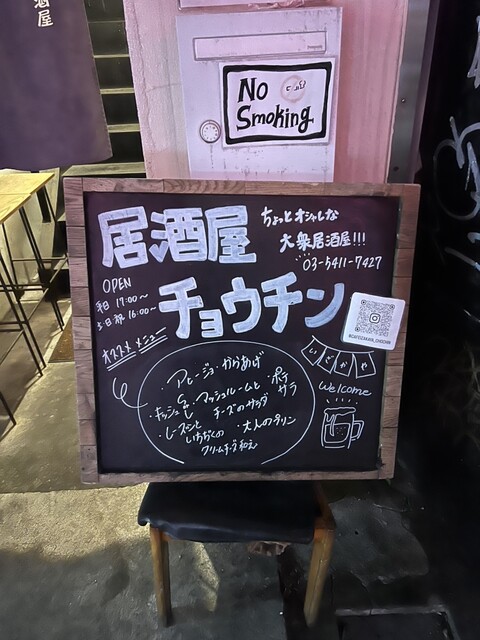 酒屋
No
Smoking
居酒屋
ちょっとオシャレな
大衆居酒屋!!!
03-5411-7427
OPEN
平日 17:00〜
土日祝 16:00〜
チョウチン
オススメメニュー
いざかや
Welcome
からあげ
ポテサラ
キッシュ
マッシュルームと
チーズのサラダ
レーズンと
いちぢくの
クリームチーズ和え
大人のプリン